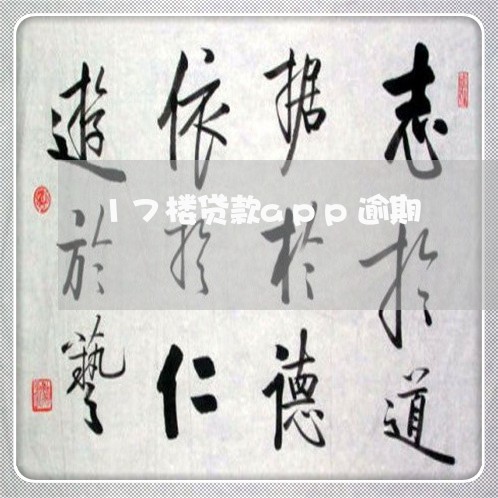 志於道
据於德
依於仁
遊於藝
17楼贷款app逾期